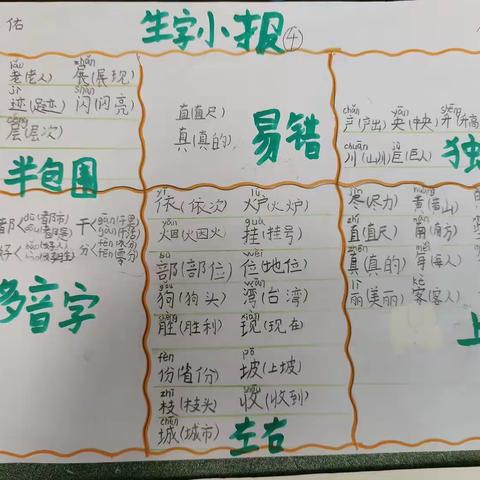 佑
生字小报④
lǎo zhǎn
老(老人) 展(展现)
jì shǎn
迹(足迹) 闪(闪亮)
céng
层(层次)
半包围
直(直尺)
真(真的)
易错
产(产出) 央(中央) 升(升高)
chuān jù
川(山川) 巨(巨人)
独
都
干
好
分
多音字
yī lú
依(依次) 炉(火炉)
yān guà
烟(火因火) 挂(挂号)
bù wèi
部(部位) 位(地位)
gǒu wān
狗(狗头) 湾(台湾)
shèng xiàn
胜(胜利) 现(现在)
fèn pō
份(省份) 坡(上坡)
zhī shōu
枝(枝头) 收(收到)
chéng
城(城市)
左右
尽(尽力) 黄(黄山)
zhí nán
直(直尺) 南(南方)
zhēn měi
真(真的) 每(每人)
lì kè
丽(美丽) 客(客人)
上